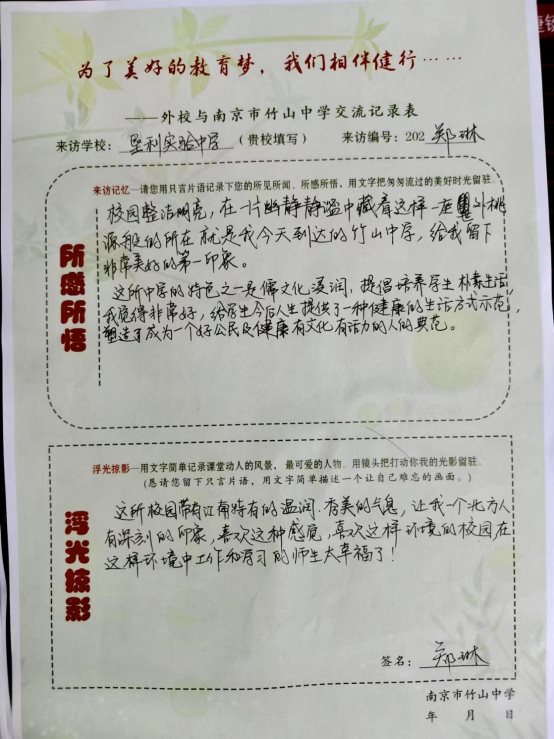 为了美好的教育梦，我们相伴健行……
——外校与南京市竹山中学交流记录表
来访学校：垦利实验中学（贵校填写） 来访编号：202 郑琳
来访记忆—请您用只言片语记录下您的所见所闻、所感所悟，用文字把匆匆流过的美好时光留驻.
所感所悟
校园整洁明亮，在一片幽静静谧中藏着这样一座世外桃
源般的所在就是我今天到达的竹山中学，给我留下
非常美好的第一印象。
这所中学的特色之一是儒文化浸润，提倡培养学生朴素生活，
我觉得非常好，给学生今后人生提供了一种健康的生活方式示范，
塑造了成为一个好公民及健康有文化有活力的人的典范。
浮光掠影—用文字简单记录课堂动人的风景，最可爱的人物。用镜头把打动你我的光影留驻.
（恳请您留下只言片语，用文字简单描述一个让自己难忘的画面。）
浮光掠影
这所校园带有江南特有的温润、秀美的气息，让我一个北方人
有深刻的印象，喜欢这种感觉，喜欢这样环境的校园在
这样环境中工作和学习的师生太幸福了！
签名：郑琳
南京市竹山中学
年 月 日